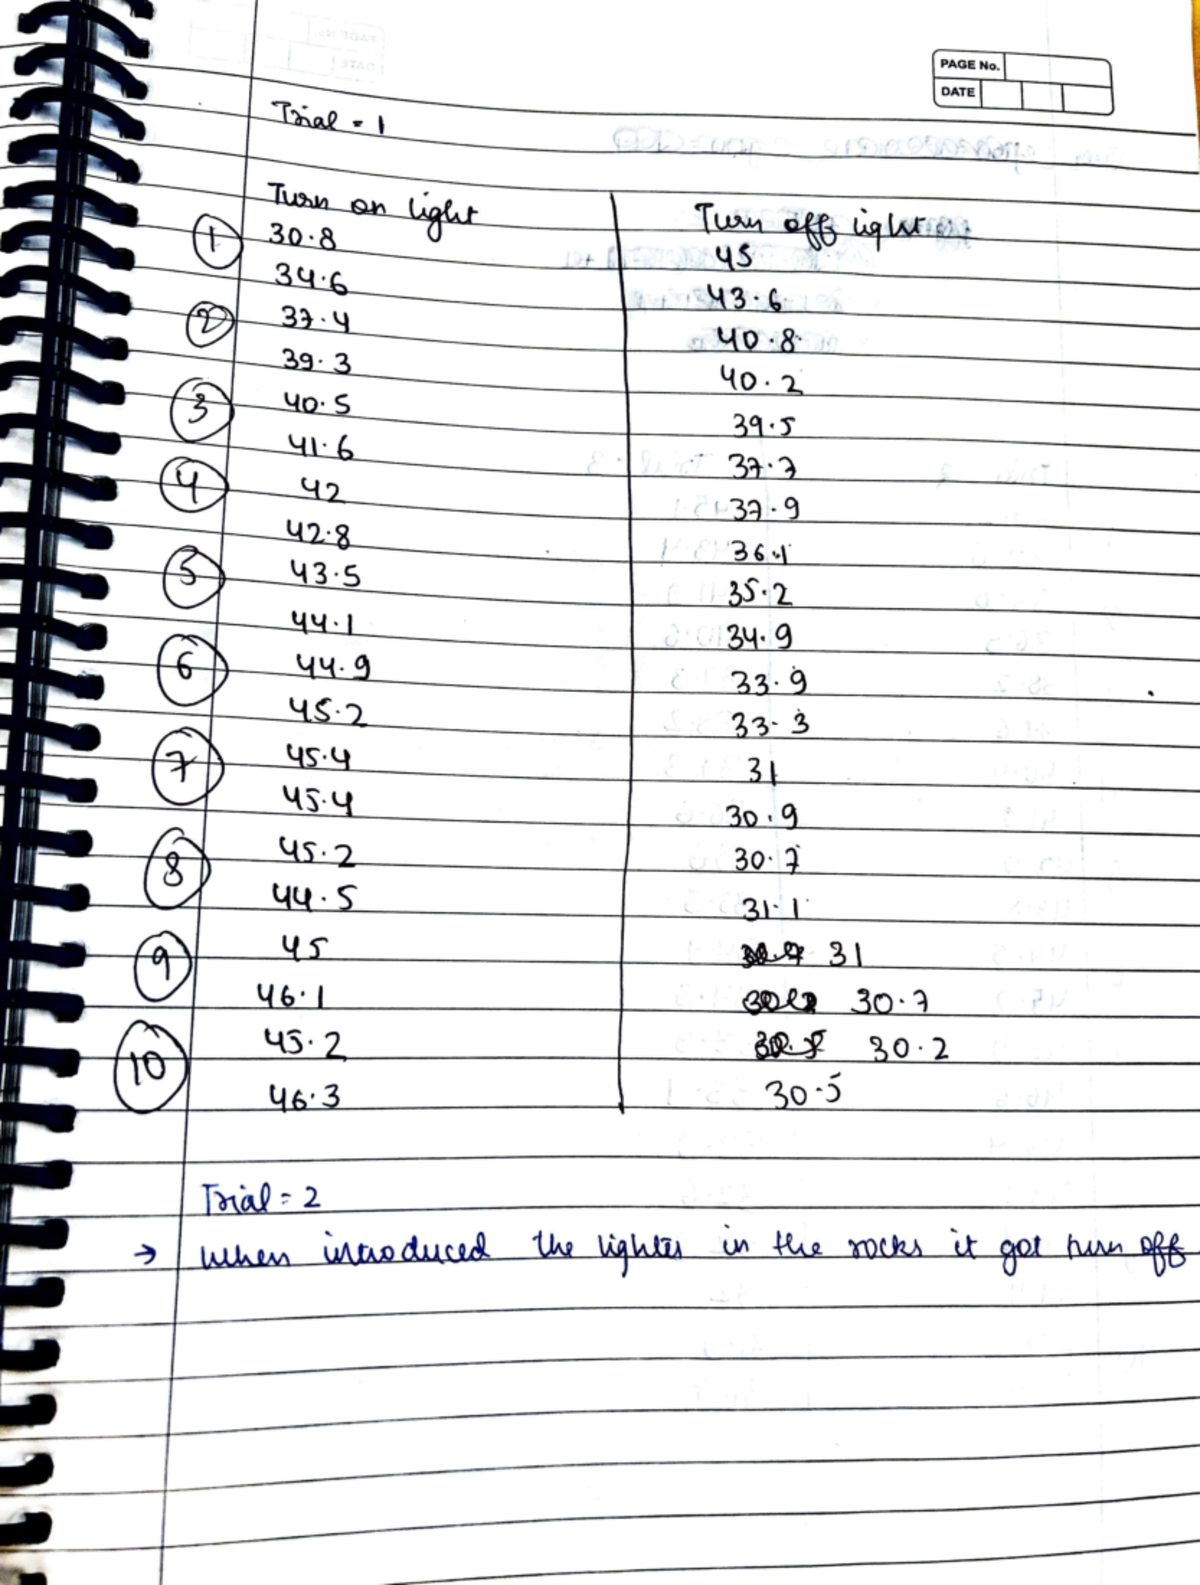 PAGE No.
DATE
Trial = 1
Turn on light Turn off light
① 30.8 45
34.6 43.6
② 37.4 40.8
39.3 40.2
③ 40.5 39.5
41.6 37.7
④ 42 37.9
42.8 36.1
⑤ 43.5 35.2
44.1 34.9
⑥ 44.9 33.9
45.2 33.3
⑦ 45.4 31
45.4 30.9
⑧ 45.2 30.7
44.5 31.1
⑨ 45 31
46.1 30.7
⑩ 45.2 30.2
46.3 30.5
Trial = 2
→ When introduced the lighter in the rocks it got turn off